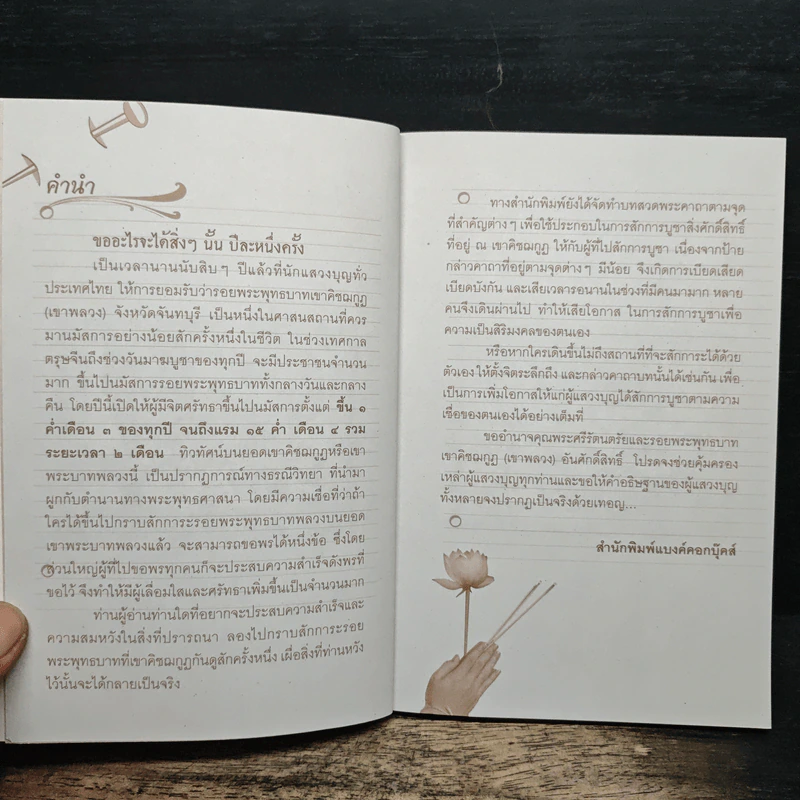 คำนำ
ขออะไรจะได้สิ่งๆ นั้น ปีละหนึ่งครั้ง
เป็นเวลานานนับสิบๆ ปีแล้วที่นักแสวงบุญทั่ว
ประเทศไทย ให้การยอมรับว่ารอยพระพุทธบาทเขาคิชฌกูฏ
(เขาพลวง) จังหวัดจันทบุรี เป็นหนึ่งในศาสนสถานที่ควร
มานมัสการอย่างน้อยสักครั้งหนึ่งในชีวิต ในช่วงเทศกาล
ตรุษจีนถึงช่วงวันมาฆบูชาของทุกปี จะมีประชาชนจำนวน
มาก ขึ้นไปนมัสการรอยพระพุทธบาททั้งกลางวันและกลาง
คืน โดยปีนี้เปิดให้ผู้มีจิตศรัทธาขึ้นไปนมัสการตั้งแต่ ขึ้น ๑
ค่ำเดือน ๓ ของทุกปี จนถึงแรม ๑๕ ค่ำ เดือน ๔ รวม
ระยะเวลา ๒ เดือน ทิวทัศน์บนยอดเขาคิชฌกูฏหรือเขา
พระบาทพลวงนี้ เป็นปรากฏการณ์ทางธรณีวิทยา ที่นำมา
ผูกกับตำนานทางพระพุทธศาสนา โดยมีความเชื่อที่ว่าถ้า
ใครได้ขึ้นไปกราบสักการะรอยพระพุทธบาทพลวงบนยอด
เขาพระบาทพลวงแล้ว จะสามารถขอพรได้หนึ่งข้อ ซึ่งโดย
ส่วนใหญ่ผู้ที่ไปขอพรทุกคนก็จะประสบความสำเร็จดังพรที่
ขอไว้ จึงทำให้มีผู้เลื่อมใสและศรัทธาเพิ่มขึ้นเป็นจำนวนมาก
ท่านผู้อ่านท่านใดที่อยากจะประสบความสำเร็จและ
ความสมหวังในสิ่งที่ปรารถนา ลองไปกราบสักการะรอย
พระพุทธบาทที่เขาคิชฌกูฏกันดูสักครั้งหนึ่ง เผื่อสิ่งที่ท่านหวัง
ไว้นั้นจะได้กลายเป็นจริง
ทางสำนักพิมพ์ยังได้จัดทำบทสวดพระคาถาตามจุด
ที่สำคัญต่างๆ เพื่อใช้ประกอบในการสักการบูชาสิ่งศักดิ์สิทธิ์
ที่อยู่ ณ เขาคิชฌกูฏ ให้กับผู้ที่ไปสักการบูชา เนื่องจากป้าย
กล่าวคาถาที่อยู่ตามจุดต่างๆ มีน้อย จึงเกิดการเบียดเสียด
เบียดบังกัน และเสียเวลารอนานในช่วงที่มีคนมามาก หลาย
คนจึงเดินผ่านไป ทำให้เสียโอกาส ในการสักการบูชาเพื่อ
ความเป็นสิริมงคลของตนเอง
หรือหากใครเดินขึ้นไม่ถึงสถานที่ที่จะสักการะได้ด้วย
ตัวเอง ให้ตั้งจิตระลึกถึง และกล่าวคาถาบทนั้นได้เช่นกัน เพื่อ
เป็นการเพิ่มโอกาสให้แก่ผู้แสวงบุญได้สักการบูชาตามความ
เชื่อของตนเองได้อย่างเต็มที่
ขออำนาจคุณพระศรีรัตนตรัยและรอยพระพุทธบาท
เขาคิชฌกูฏ (เขาพลวง) อันศักดิ์สิทธิ์ โปรดจงช่วยคุ้มครอง
เหล่าผู้แสวงบุญทุกท่านและขอให้คำอธิษฐานของผู้แสวงบุญ
ทั้งหลายจงปรากฏเป็นจริงด้วยเทอญ...
สำนักพิมพ์แบงค์คอกบุ๊คส์